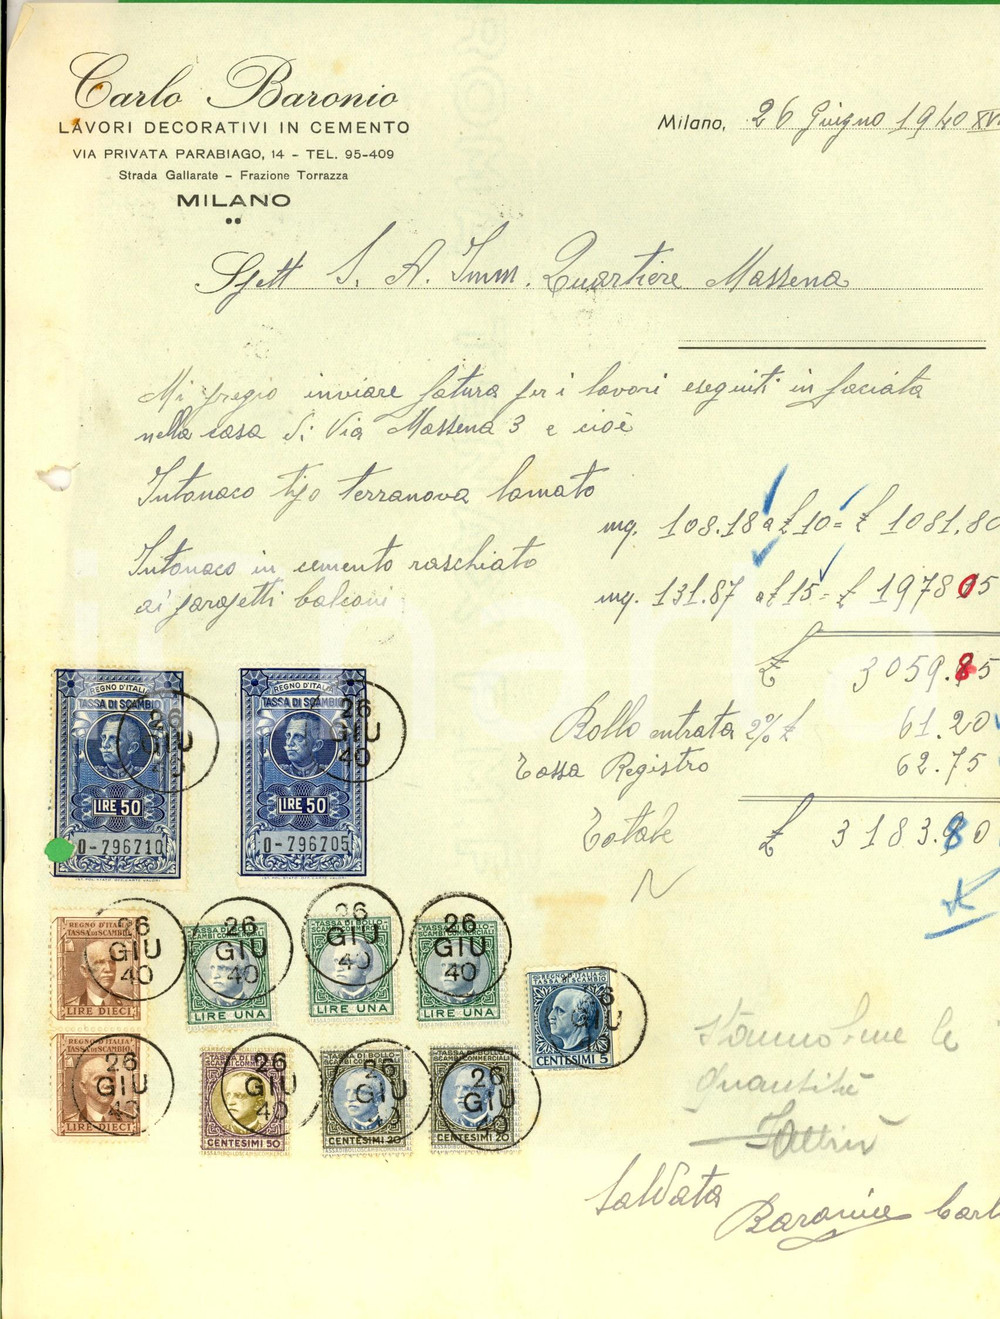 Carlo Baronio
LAVORI DECORATIVI IN CEMENTO
VIA PRIVATA PARABIAGO, 14 - TEL. 95-409
Strada Gallarate - Frazione Torrazza
MILANO
Milano, 26 Giugno 1940 XVI
Spett S. A. Imm. Quartiere Massena
Mi pregio inviare fatura per i lavori eseguiti in faciata
nella casa di Via Massena 3 e cioè
Intonaco tipo terranova lamato
mq. 108.18 a £ 10 = £ 1081.80
Intonaco in cemento raschiato
ai parapetti balconi
mq. 131.87 a £ 15 = £ 1978 05
£ 3059.85
Bollo entrata 2% £ 61.20
Tassa Registro 62.75
Totale £ 3183.80
REGNO D'ITALIA
TASSA DI SCAMBIO
LIRE 50
0-796710
REGNO D'ITALIA
TASSA DI SCAMBIO
LIRE 50
0-796705
26 GIU 40
26 GIU 40
REGNO D'ITALIA
TASSA DI SCAMBIO
LIRE DIECI
TASSA DI BOLLO
SCAMBI COMMERCIALI
LIRE UNA
TASSA DI BOLLO
LIRE UNA
TASSA DI BOLLO
SCAMBI COMMERCIALI
LIRE UNA
26 GIU 40
26 GIU 40
26 GIU 40
26 GIU 40
REGNO D'ITALIA
TASSA DI SCAMBIO
CENTESIMI 5
6 GIU
REGNO D'ITALIA
TASSA DI SCAMBIO
LIRE DIECI
CENTESIMI 50
TASSA DI BOLLO
SCAMBI COMMERCIALI
CENTESIMI 20
TASSA DI BOLLO
SCAMBI COMMERCIALI
CENTESIMI 20
26 GIU 40
26 GIU 40
GIU
26 GIU 40
le
quantità
Saldata
Baronio Carl